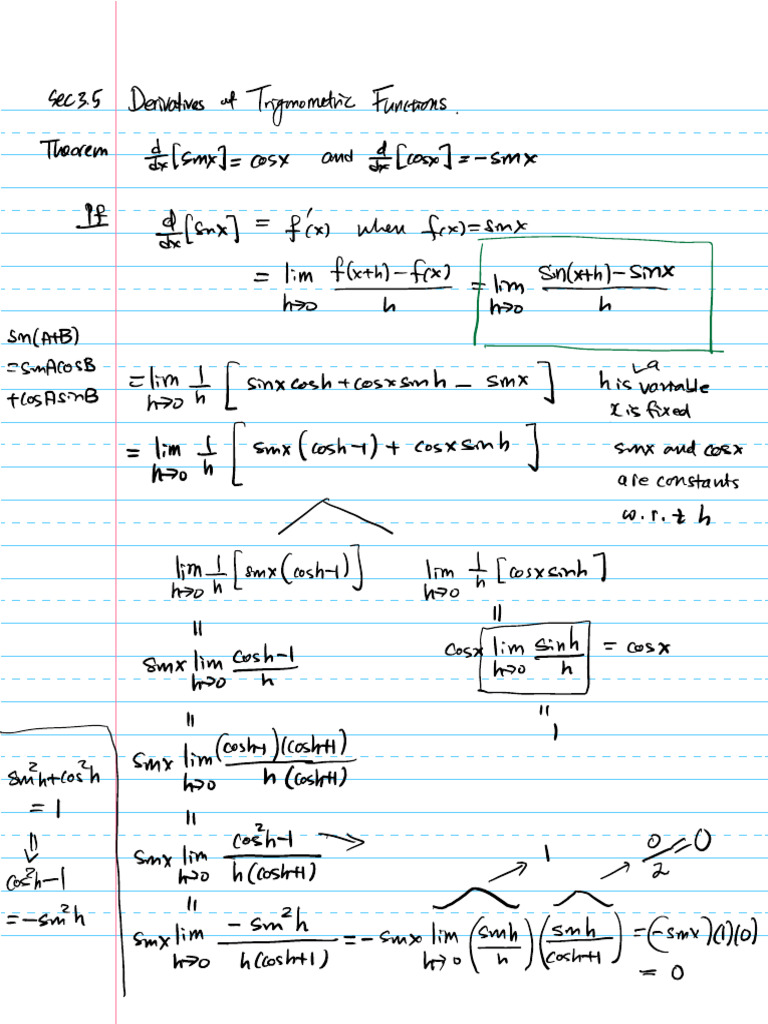 Sec 3.5 Derivatives of Trigonometric Functions.
Theorem d/dx [sinx] = cosx and d/dx [cosx] = -sinx
Pf d/dx [sinx] = f'(x) when f(x) = sinx
= lim h→0 f(x+h)-f(x) / h = lim h→0 sin(x+h)-sinx / h
sin(A+B)
= sinAcosB
+cosAsinB
= lim h→0 1/h [sinxcosh + cosxsinh - sinx]
h is a variable
x is fixed
= lim h→0 1/h [sinx(cosh-1) + cosxsinh]
sinx and cosx
are constants
w.r.t h
lim h→0 1/h [sinx(cosh-1)] lim h→0 1/h [cosxsinh]
= =
sinx lim h→0 cosh-1 / h cosx lim h→0 sinh / h = cosx
= =
1
sinx lim h→0 (cosh-1)(cosh+1) / h(cosh+1)
=
sinx lim h→0 cos²h-1 / h(cosh+1) → 1 0/2 = 0
=
sinx lim h→0 -sin²h / h(cosh+1) = -sinx lim h→0 (sinh / h)(sinh / cosh+1) = (-sinx)(1)(0)
= 0
sin²h+cos²h
= 1
⇓
cos²h-1
= -sin²h